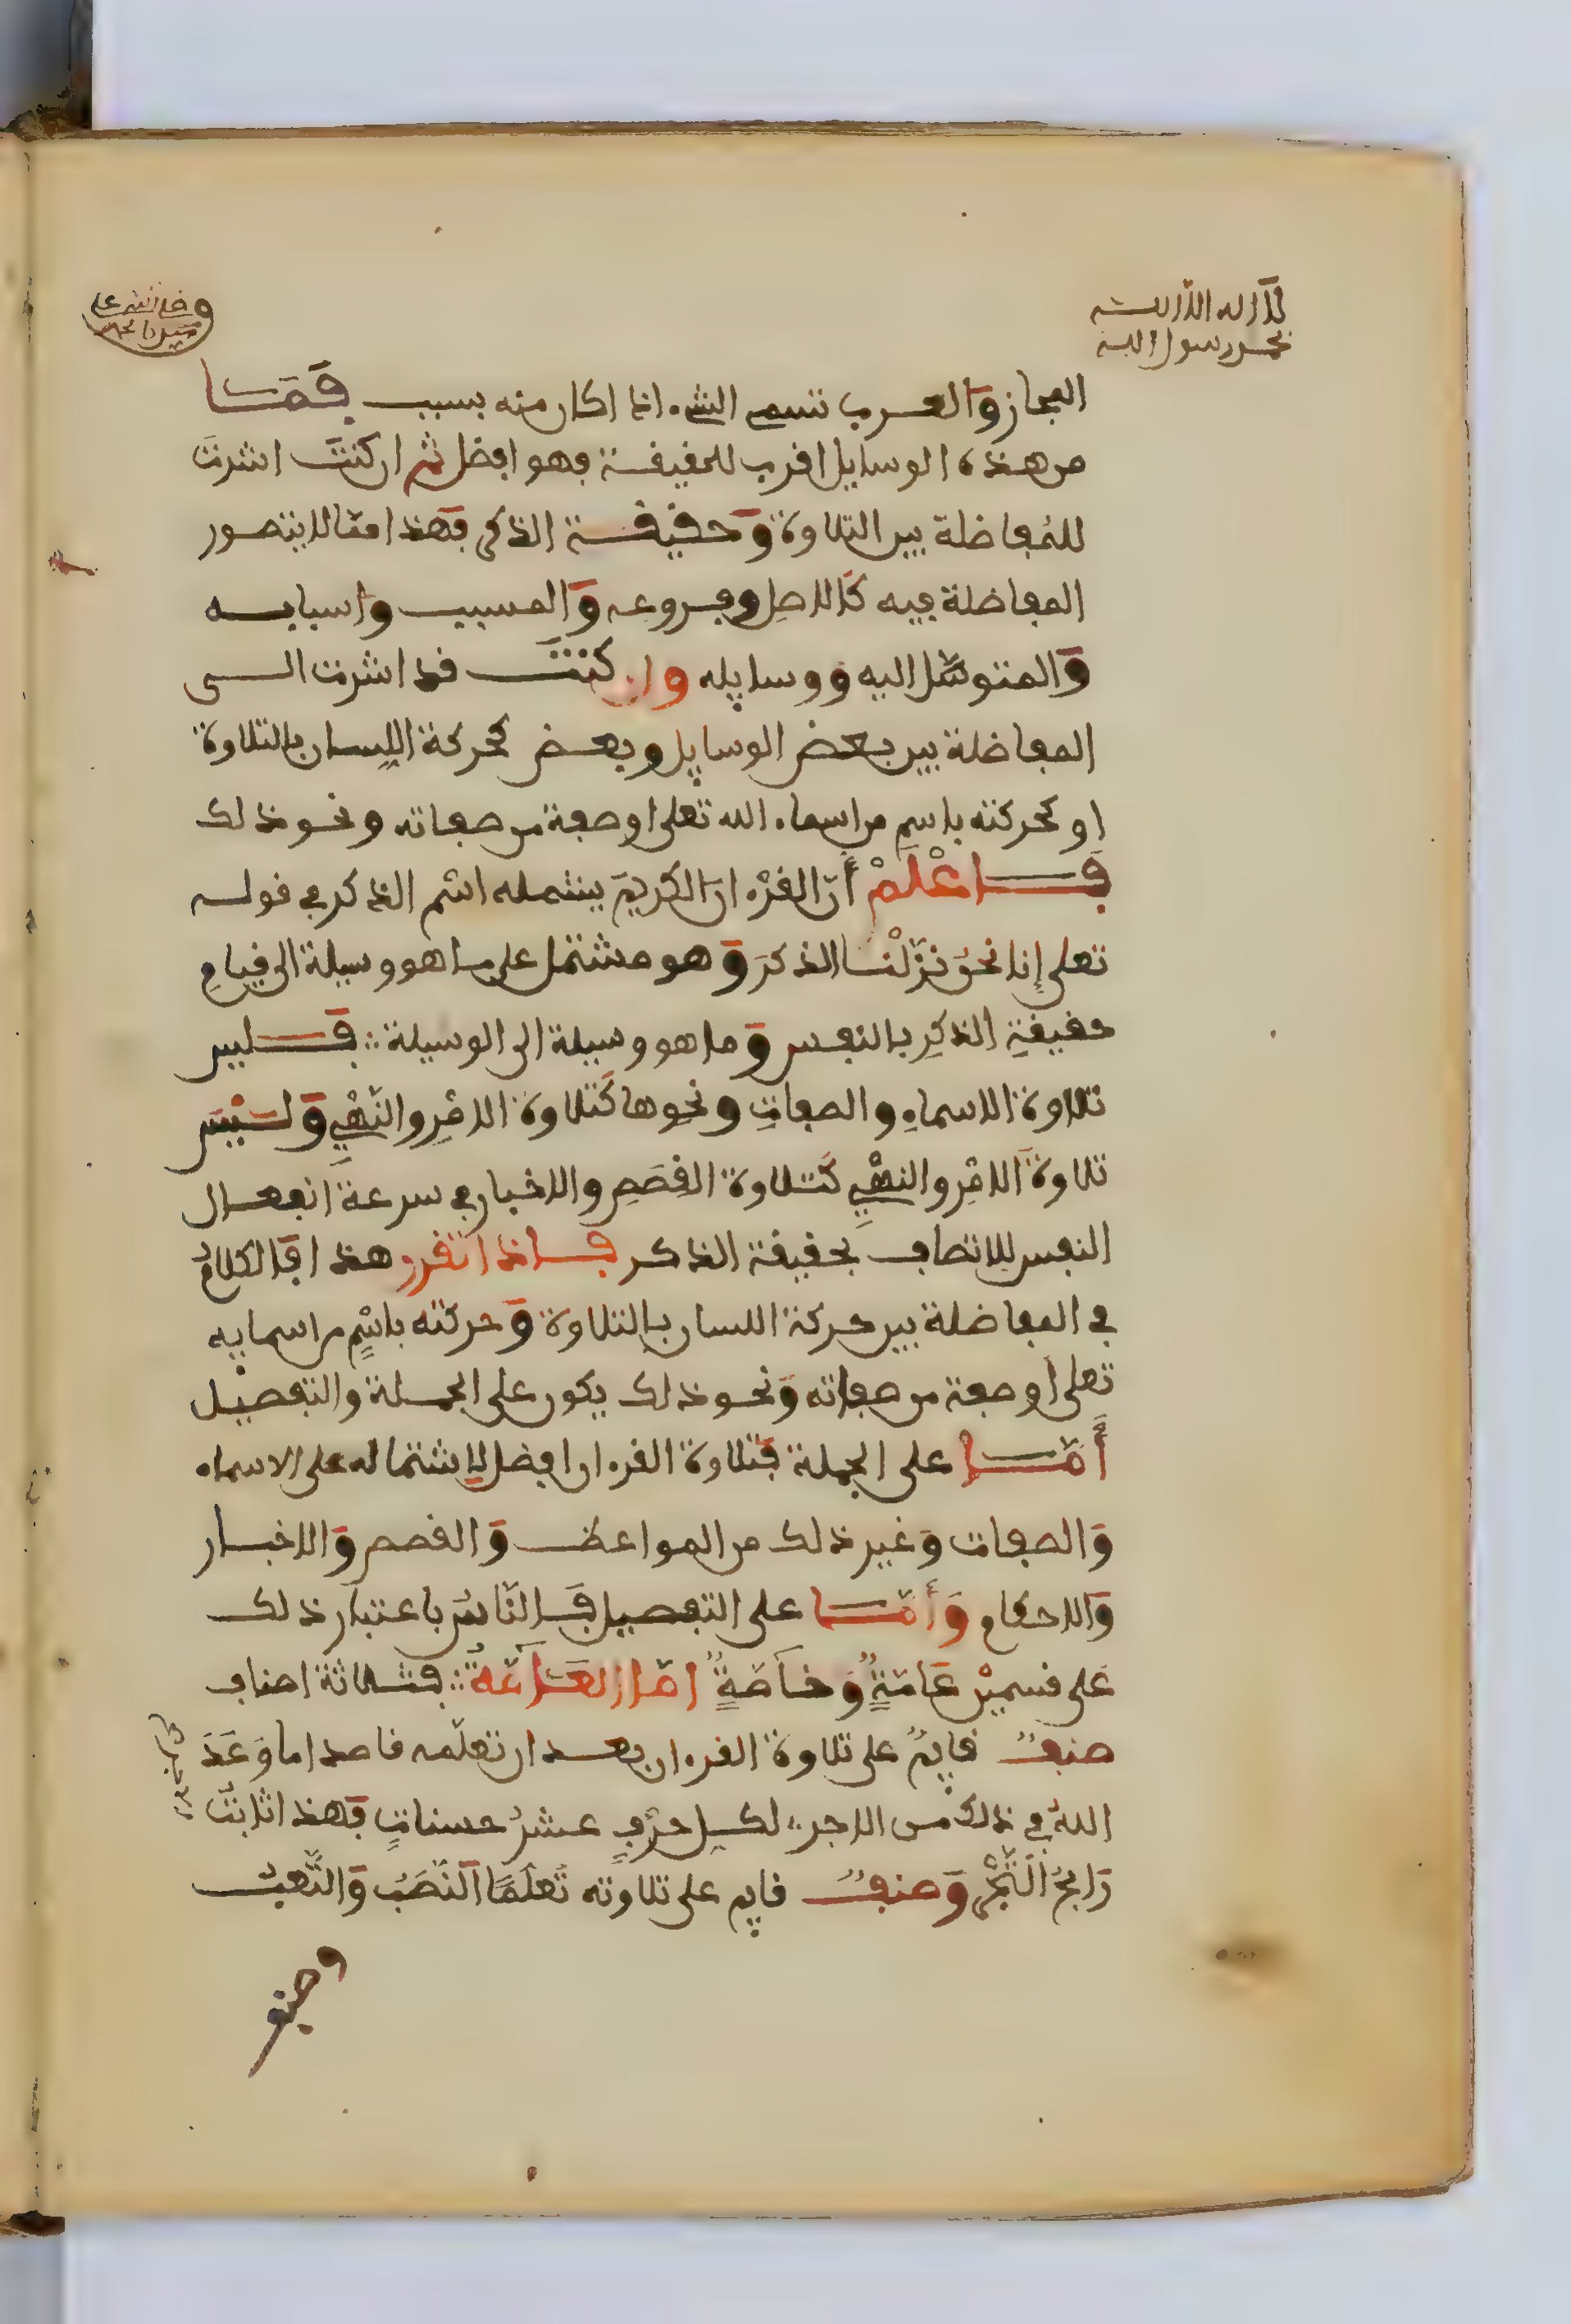 لا اله الا الله
محمد رسول الله
وصلى الله على
سيدنا محمد
المجاز والعرب تسمى الشيء اذا كان منه بسبب فما
من هذه الوسايل اقرب للحقيقة فهو افضل ثم ان كنت اشرت
للمفاضلة بين التلاوة وحقيقة الذكر فهذا مما لا يتصور
المفاضلة فيه كالاصل وفروعه والمسبب واسبابه
والمتوسَّل اليه ووسايله وان كنت قد اشرت الى
المفاضلة بين بعض الوسايل وبعض كحركة اللسان بالتلاوة
او كحركته باسم من اسماء الله تعلى او صفة من صفاته ونحو ذلك
فاعْلَمْ أنّ القرءان الكريم يشمله اسْم الذكر في قوله
تعلى إنا نحنُ نزّلْنا الذكرَ وهو مشتمل على ما هو وسيلة الى قيامِ
حقيقةِ الذكرِ بالنفس وما هو وسيلة الى الوسيلة فليس
تلاوة الاسماءِ والصفاتِ ونحوها كتلاوة الامْرِ والنّهْيِ وليْسَ
تلاوةُ الامْرِ والنهْيِ كتلاوة القِصَصِ والاخبار في سرعة انفعال
النفس للاتصاف بحقيقة الذكر فاذا تقرر هذا فالكلامُ
في المفاضلة بين حركة اللسان بالتلاوة وحركته باسْمٍ من اسمايه
تعلى أو صفة من صفاته ونحو ذلك يكون على الجملة والتفصيل
أمّا على الجملة فتلاوة القرءان افضل لاِشتماله على الاسماء
والصفات وغير ذلك من المواعظ والقصص والاخبار
والاحكام وَأمّا على التفصيل فالنّاسُ باعتبار ذلك
على قسميْن عَامّةٍ وَخاصّةٍ امّا العَامّةُ فثلاثة اصناف
صنفٌ قايمٌ على تلاوة القرءان بعد ان تعلّمه قاصدا ما وَعَدَ
اللهُ في ذلك من الاجر لكل حرْفٍ عشرُ حسناتٍ فهذا ثابتٌ
رَابحُ التَّجْرِ وَصنفٌ قايم على تلاوته تَعلّمًا النّصَبُ والتَّعبُ
وصنف